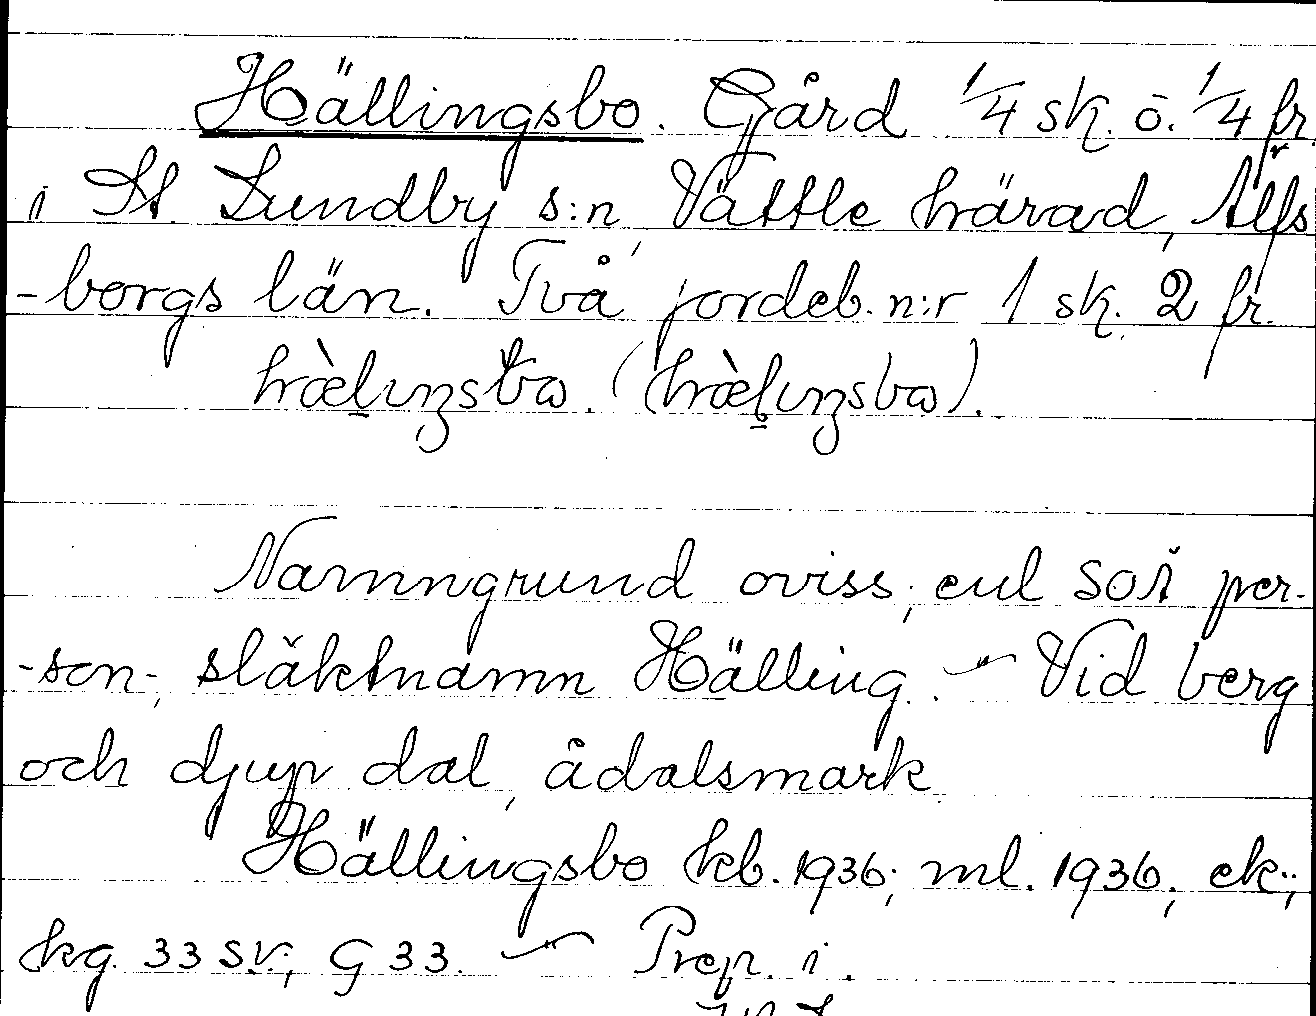 Hällingsbo. Gård 1/4 sk. o. 1/4 fr.
i St. Lundby s:n, Vättle härad, Älfs
-borgs län. Två jordeb. n:r 1 sk. 2 fr.
Namngrund oviss; enl som per-
-son-, släktnamn Hälling. – Vid berg
och djup dal, ådalsmark
Hällingsbo kb. 1936; ml. 1936; ek;
kg. 33 SV; G 33. – Prep. i.